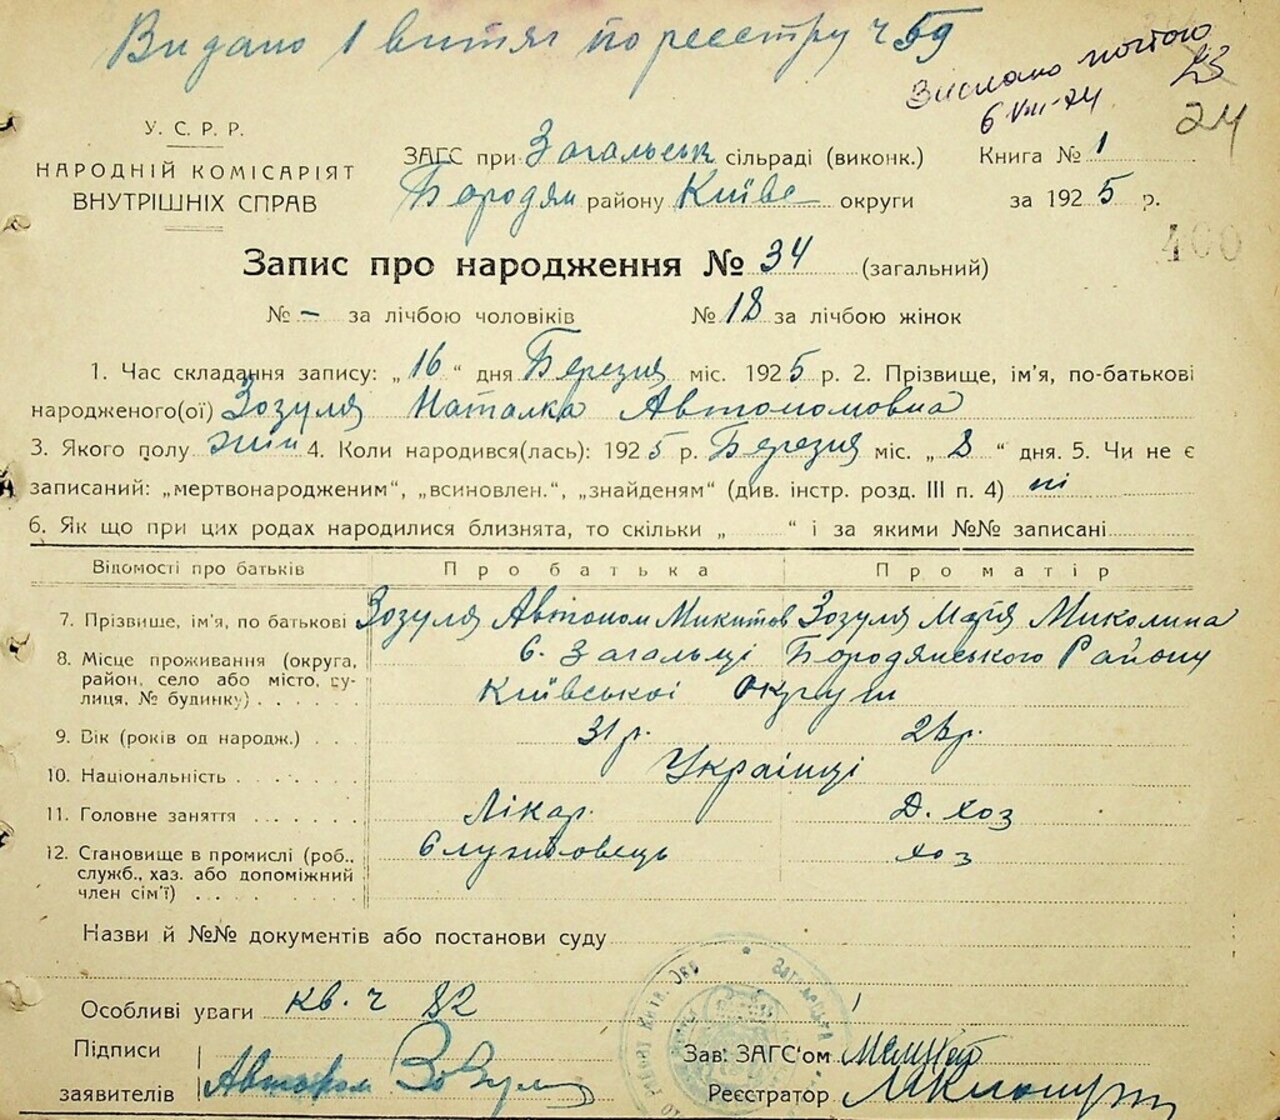 Видано 1 витяг по реєстру ч 59
Вислано поштою
6 VIII-74
23
24
У. С. Р. Р.
НАРОДНІЙ КОМІСАРІЯТ
ВНУТРІШНІХ СПРАВ
ЗАГС при Загальськ сільраді (виконк.) Книга № 1
Бородян району Київс округи за 1925 р.
400
Запис про народження № 34 (загальний)
№ – за лічбою чоловіків № 18 за лічбою жінок
1. Час складання запису: „16“ дня Березня міс. 1925 р. 2. Прізвище, ім'я, по-батькові
народженого(ої) Зозуля Наталка Автономовна
3. Якого полу жін 4. Коли народився(лась): 1925 р. Березня міс. „8“ дня. 5. Чи не є
записаний: „мертвонародженим“, „всиновлен.“, „знайденям“ (див. інстр. розд. III п. 4) ні
6. Як що при цих родах народилися близнята, то скільки „ “ і за якими №№ записані
Відомості про батьків Про батька Про матір
7. Прізвище, ім'я, по батькові Зозуля Автоном Микитов Зозуля Марія Миколина
8. Місце проживання (округа, район, село або місто, вулиця, № будинку) с. Загальці Бородянського Району
Київської округи
9. Вік (років од народж.) 31 р. 28 р.
10. Національність Українці
11. Головне заняття Лікар. Д. хоз
12. Становище в промислі (роб., служб., хаз. або допоміжний член сім'ї) Службовець хоз
Назви й №№ документів або постанови суду
Особливі уваги кв. ч 82
Підписи
заявителів Автоном Зозуля
Зав. ЗАГС'ом
Реєстратор